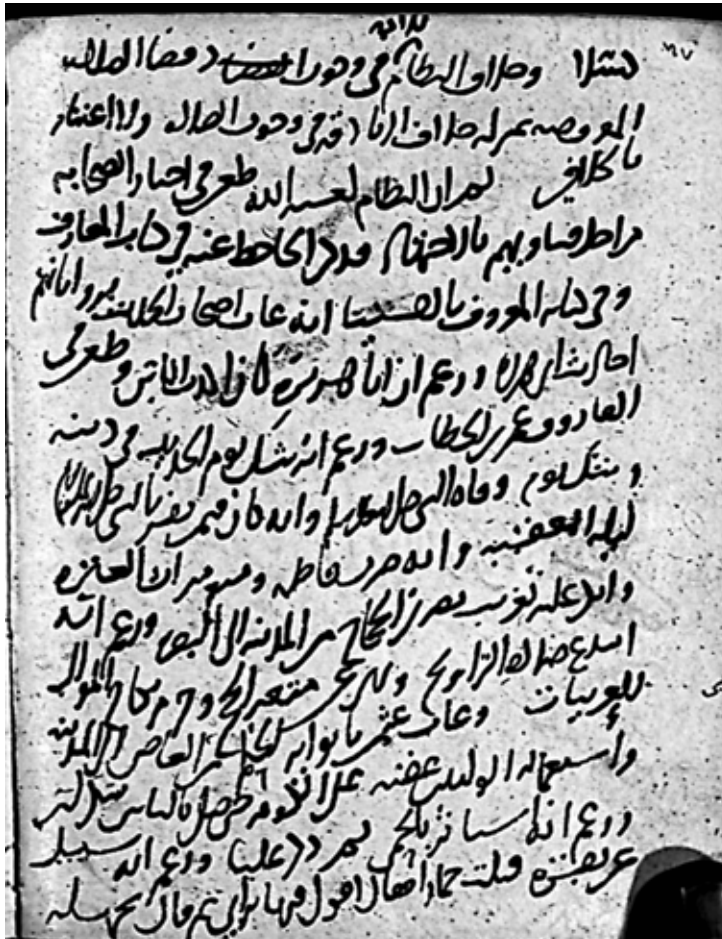 وخلاف النظام في وجوب قضا الصلاة
المفروضه بمنزلة خلاف الزنادقة في وجوب الصلاة ولا اعتبار
ثم ان النظام لعنه الله طعن في اخبار الصحابه
من اجل فتاويهم بالاجتهاد فذكر الجاحظ عنه في كتاب المعارف
وفي كتابه المعروف بالفتيا انه عاب اصحاب الحديث برواياتهم
احاديث ابي هريرة وزعم ان ابا هريرة كان اكذب الناس وطعن في
الفاروق عمر بن الخطاب وزعم انه شك يوم الحديبيه في دينه
وشك يوم وفاة النبي صلى الله عليه وسلم وانه كان فيمن نفر بالنبي صلى الله عليه وسلم
ليلة العقبه وانه ضرب فاطمه ومنع ميراث العترة
وانكر عليه تغريب نصر بن الحجاج من المدينه الى البصره وزعم انه
ابدع صلاة التراويح ونهى عن متعة الحج وحرم نكاح الموالي
للعربيات وعاب عثمن بايوائه الحكم بن العاص الى المدينه
واستعماله الوليد بن عقبه على الكوفه حتى صلى بالناس
وزعم انه استاثر بالحمى ثم ذكر عليا وزعم انه سيل
عن بقرة قتلت حمارا فقال اقول فيها برايي ثم قال بجهله